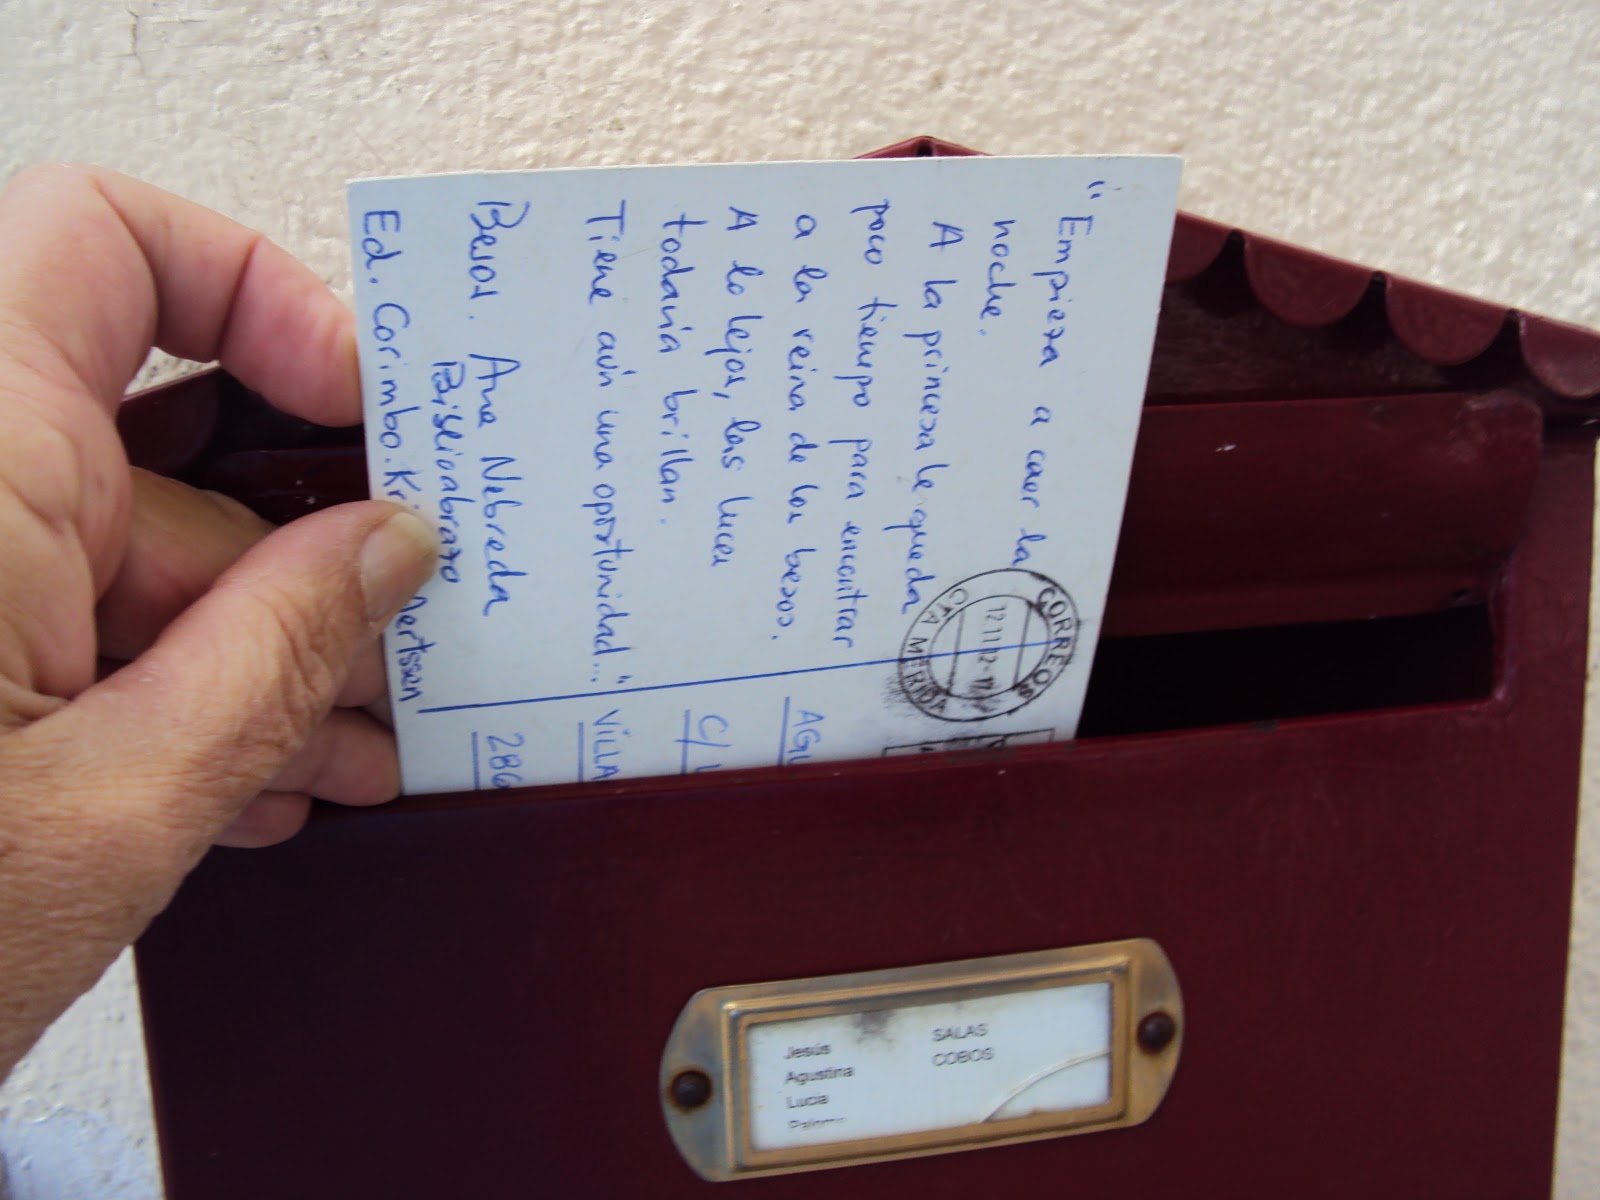 "Empieza a caer la
noche.
A la princesa le queda
poco tiempo para encontrar
a la reina de los besos.
A lo lejos, las luces
todavía brillan.
Tiene aún una oportunidad..."
Besos. Ana Nebreda
Biblioabrazo
Ed. Corimbo. Kri Aertssen
CORREOS
12.11.12
MERIDA
AGU
C/
VILLA
286
Jesús SALAS
Agustina COBOS
Lucia